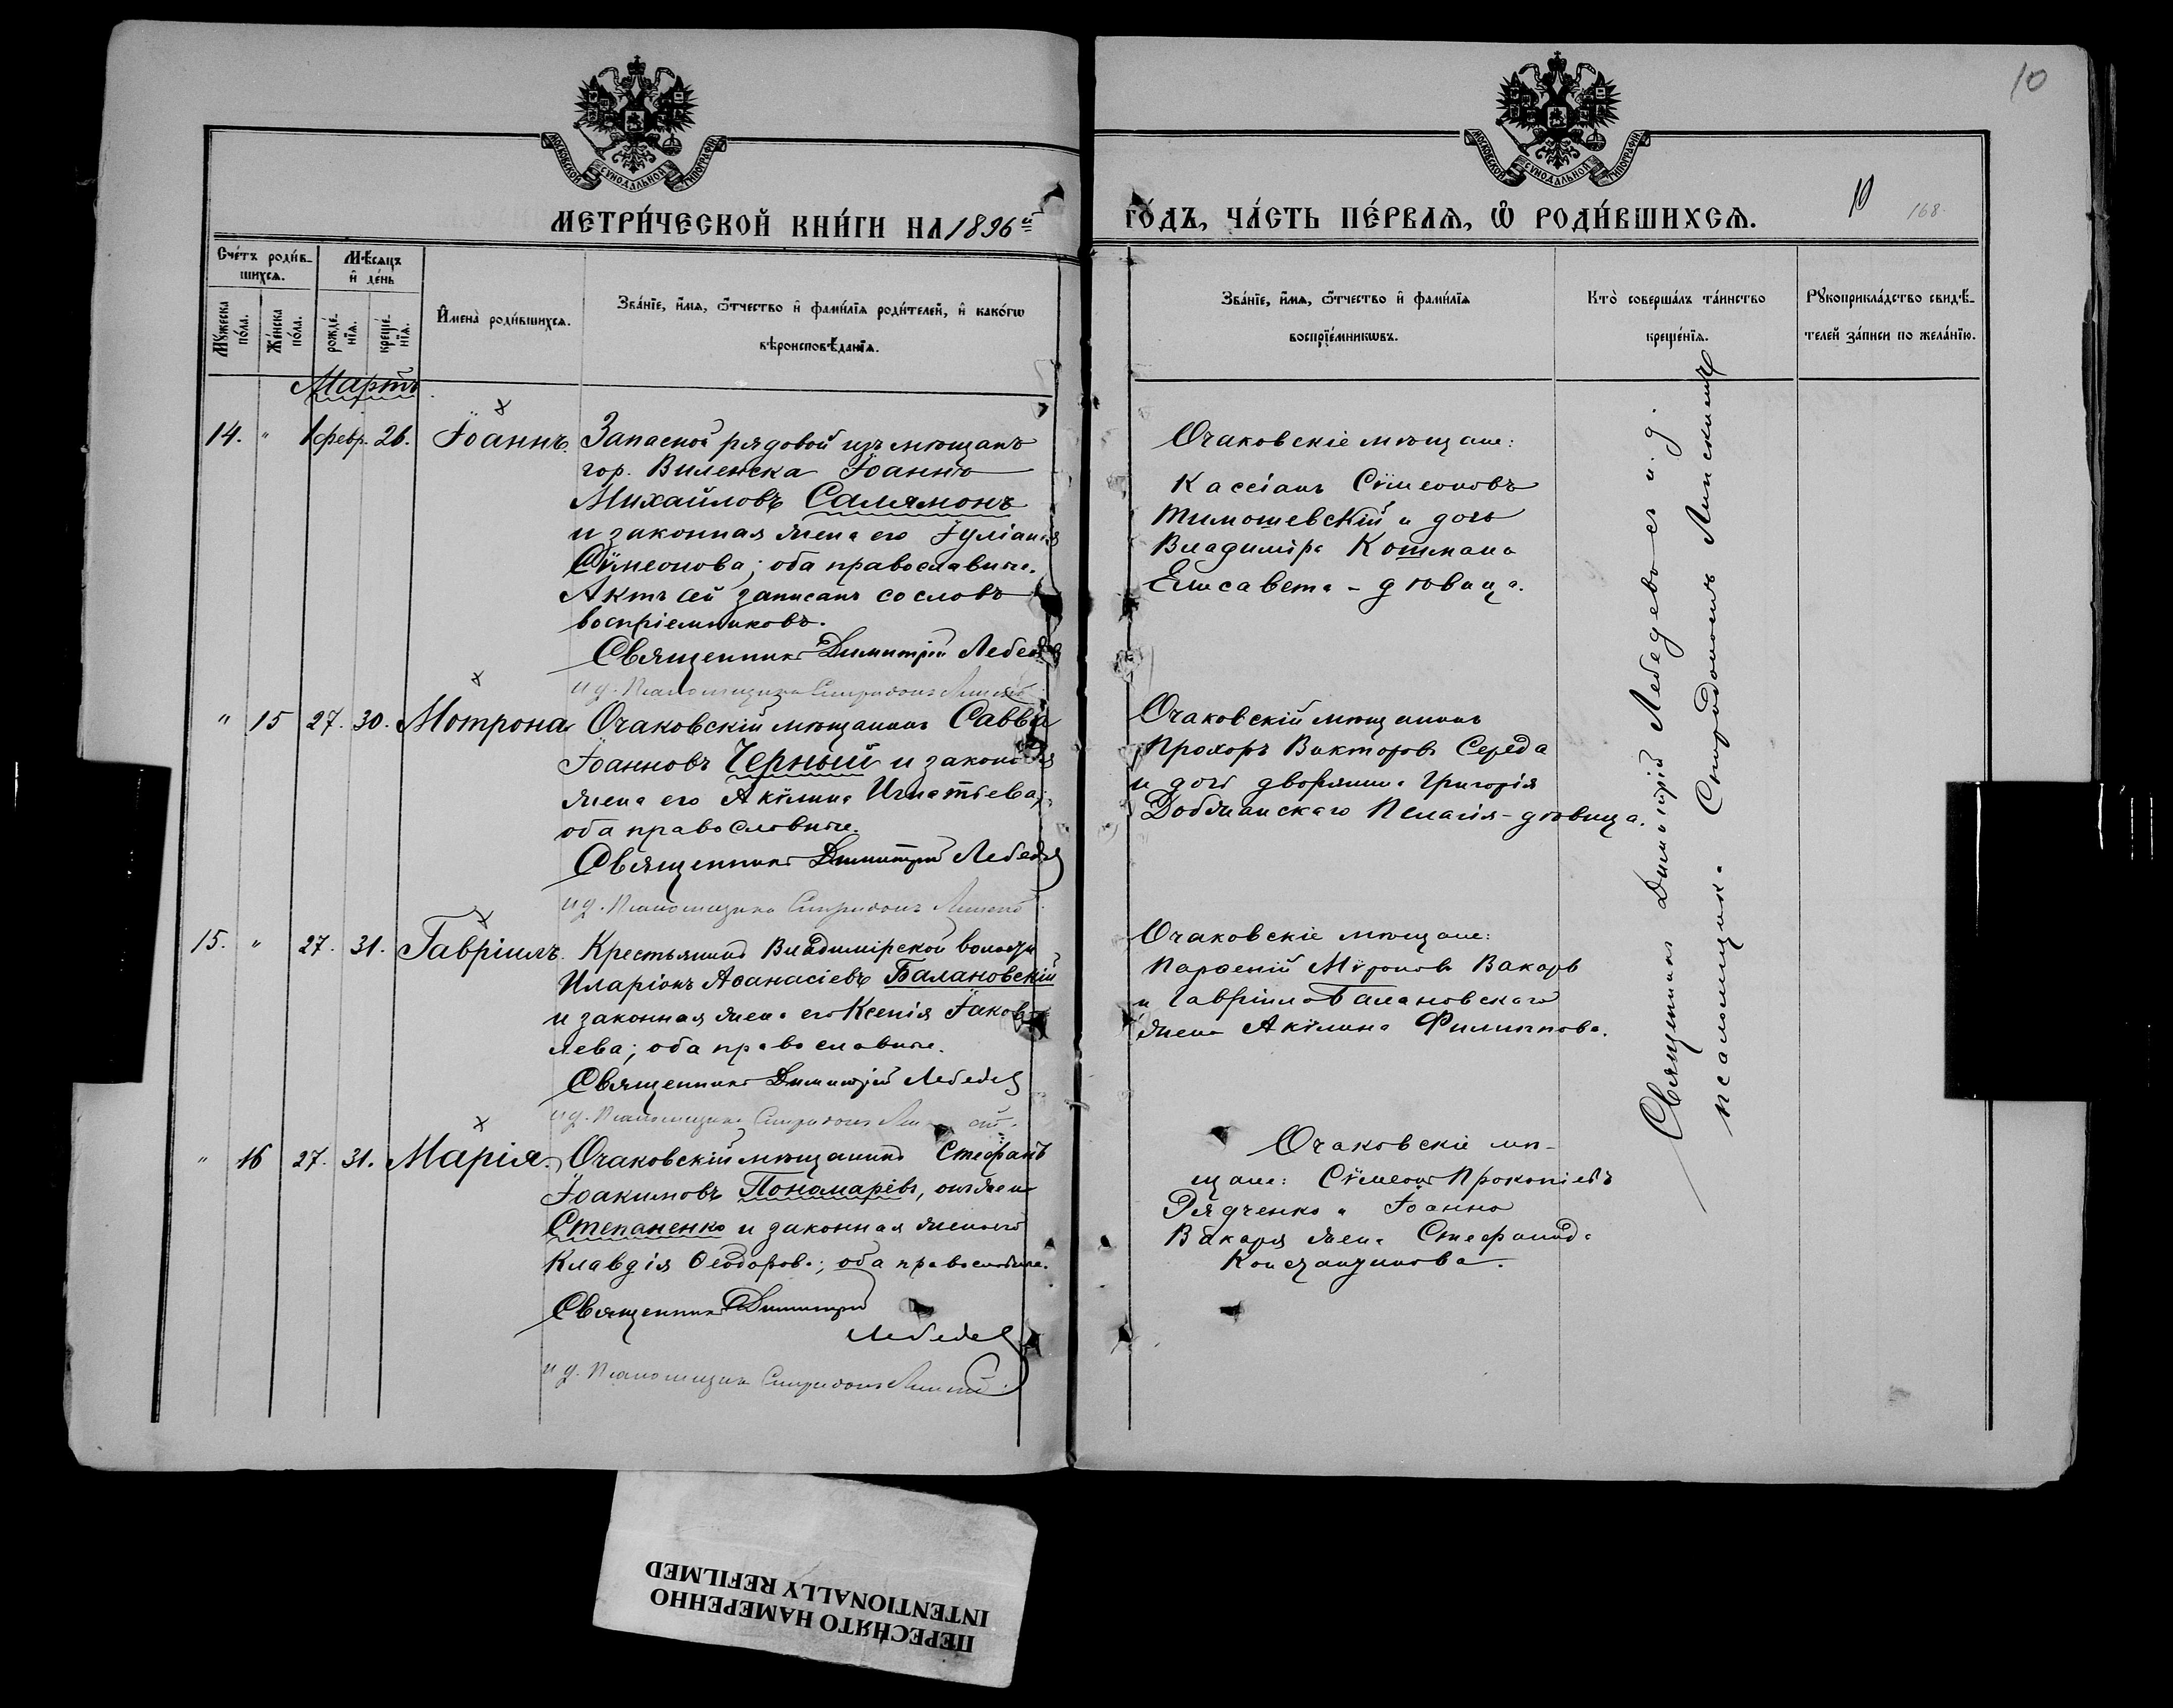 10
МОСКОВСКОЙ СѴНОДАЛЬНОЙ ТИПОГРАФІИ
МОСКОВСКОЙ СѴНОДАЛЬНОЙ ТИПОГРАФІИ
МЕТРИ́ЧЕСКОЙ КНИ́ГИ НА 1896й
ГО́ДЪ, ЧА́СТЬ ПЕ́РВАѦ, Ѿ РОДИ́ВШИХСѦ.
10
168
Сче́тъ роди́в-
шихсѧ.
Мѣ́сѧцъ
и҆ де́нь
Мꙋ́жеска
по́ла.
Же́нска
по́ла.
рожде́-
нїѧ.
креще́-
нїѧ.
И҆мена̀ роди́вшихсѧ.
Зва́нїе, и҆́мѧ, ѻ҆́тчество и҆ фами́лїѧ роди́телей, и҆ како́гѡ
вѣроисповѣ́данїѧ.
Зва́нїе, и҆́мѧ, ѻ҆́тчество и҆ фами́лїѧ
воспрїе́мникѡвъ.
Кто̀ соверша́лъ та́инство
креще́нїѧ.
Рꙋкоприкла́дство свидѣ́-
телей за́писи по жела́нїю.
Мартъ
14. " 1 февр. 26. Іоаннъ. Запасной рядовой изъ мѣщанъ
гор. Виленска Іоаннъ
Михайловъ Салямонъ
и законная жена его Іуліанія
Сѵмеонова; оба православные.
Актъ сей записанъ со словъ
воспріемниковъ.
Священникъ Димитрій Лебедевъ
и д. Псаломщика Спиридонъ Липскій
Очаковскіе мѣщане:
Кассіанъ Сѵмеоновъ
Тимошевскій и дочь
Владиміра Котмана
Елисавета - дѣвица.
" 15 27. 30. Мотрона Очаковскій мѣщанинъ Савва
Іоанновъ Черный и законная
жена его Акѵлина Игнатьева;
оба православные.
Священникъ Димитрій Лебедевъ
и д. Псаломщика Спиридонъ Липскій
Очаковскій мѣщанинъ
Прохоръ Викторовъ Середа
и дочь дворянина Григорія
Добжанскаго Пелагія - дѣвица.
15. " 27. 31. Гавріилъ. Крестьянинъ Владимірской волости
Иларіонъ Аѳанасіевъ Балановскій
и законная жена его Ксенія Іаков-
лева; оба православные.
Священникъ Димитрій Лебедевъ
и д. Псаломщика Спиридонъ Липскій
Очаковскіе мѣщане:
Парѳеній Мѵроновъ Вакарь
и Гавріила Балановскаго
жена Акѵлина Филиппова.
" 16 27. 31. Марія. Очаковскій мѣщанинъ Стефанъ
Іоакимовъ Пономарёвъ, онъ же и
Степаненко и законная жена его
Клавдія Ѳеодорова; оба православные.
Священникъ Димитрій
Лебедевъ
и д. Псаломщика Спиридонъ Липскій
Очаковскіе мѣ-
щане: Сѵмеонъ Прокопіевъ
Рядченко и Іоанна
Вакаря жена Стефанида
Константинова.
Священникъ Димитрій Лебедевъ съ и. д.
псаломщика Спиридономъ Липскимъ
ПЕРЕСНЯТО НАМЕРЕННО
INTENTIONALLY REFILMED